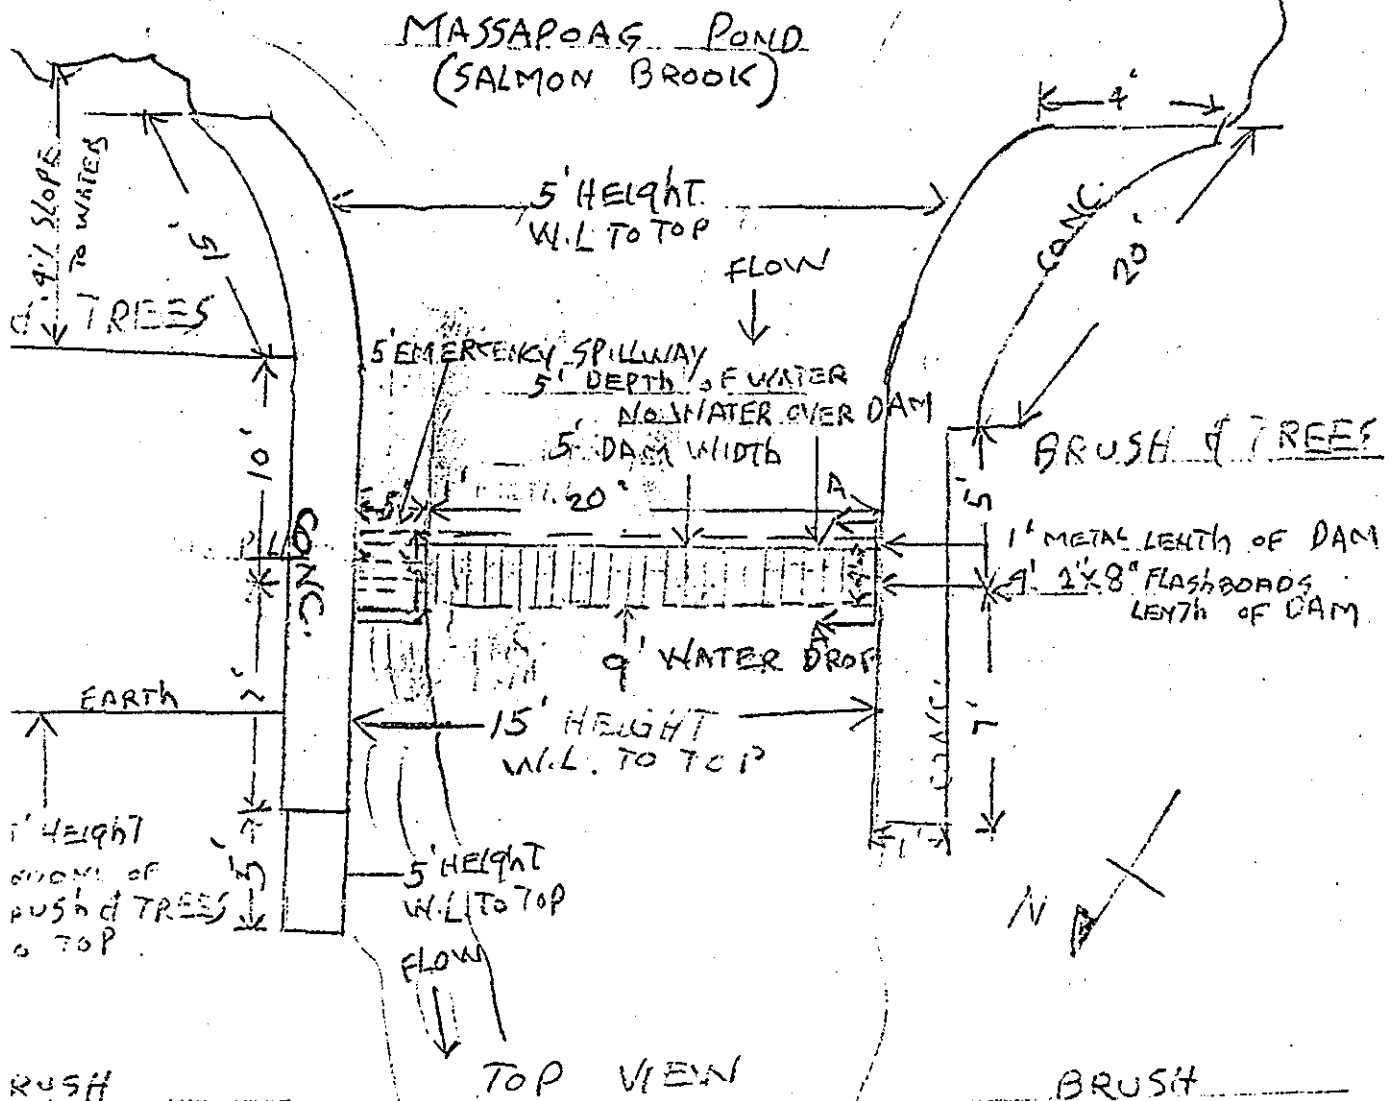 MASSAPOAG POND
(SALMON BROOK)
4'
SLOPE
TO WATER
15'
5' HEIGHT
W.L TO TOP
CONC.
20'
FLOW
& TREES
5' EMERGENCY SPILLWAY
5' DEPTH OF WATER
NO WATER OVER DAM
5' DAM WIDTH
BRUSH & TREES
10'
5'
20'
A
5'
1' METAL LENTH OF DAM
4' 2"X8" FLASHBOADS
LENTH OF DAM
CONC.
A
9' WATER DROP
EARTH
15' HEIGHT
W.L. TO TOP
CONC.
7'
1'
1' HEIGHT
OF
& TREES
TOP
5'
5' HEIGHT
W.L. TO TOP
N
FLOW
TOP VIEW
RUSH
BRUSH